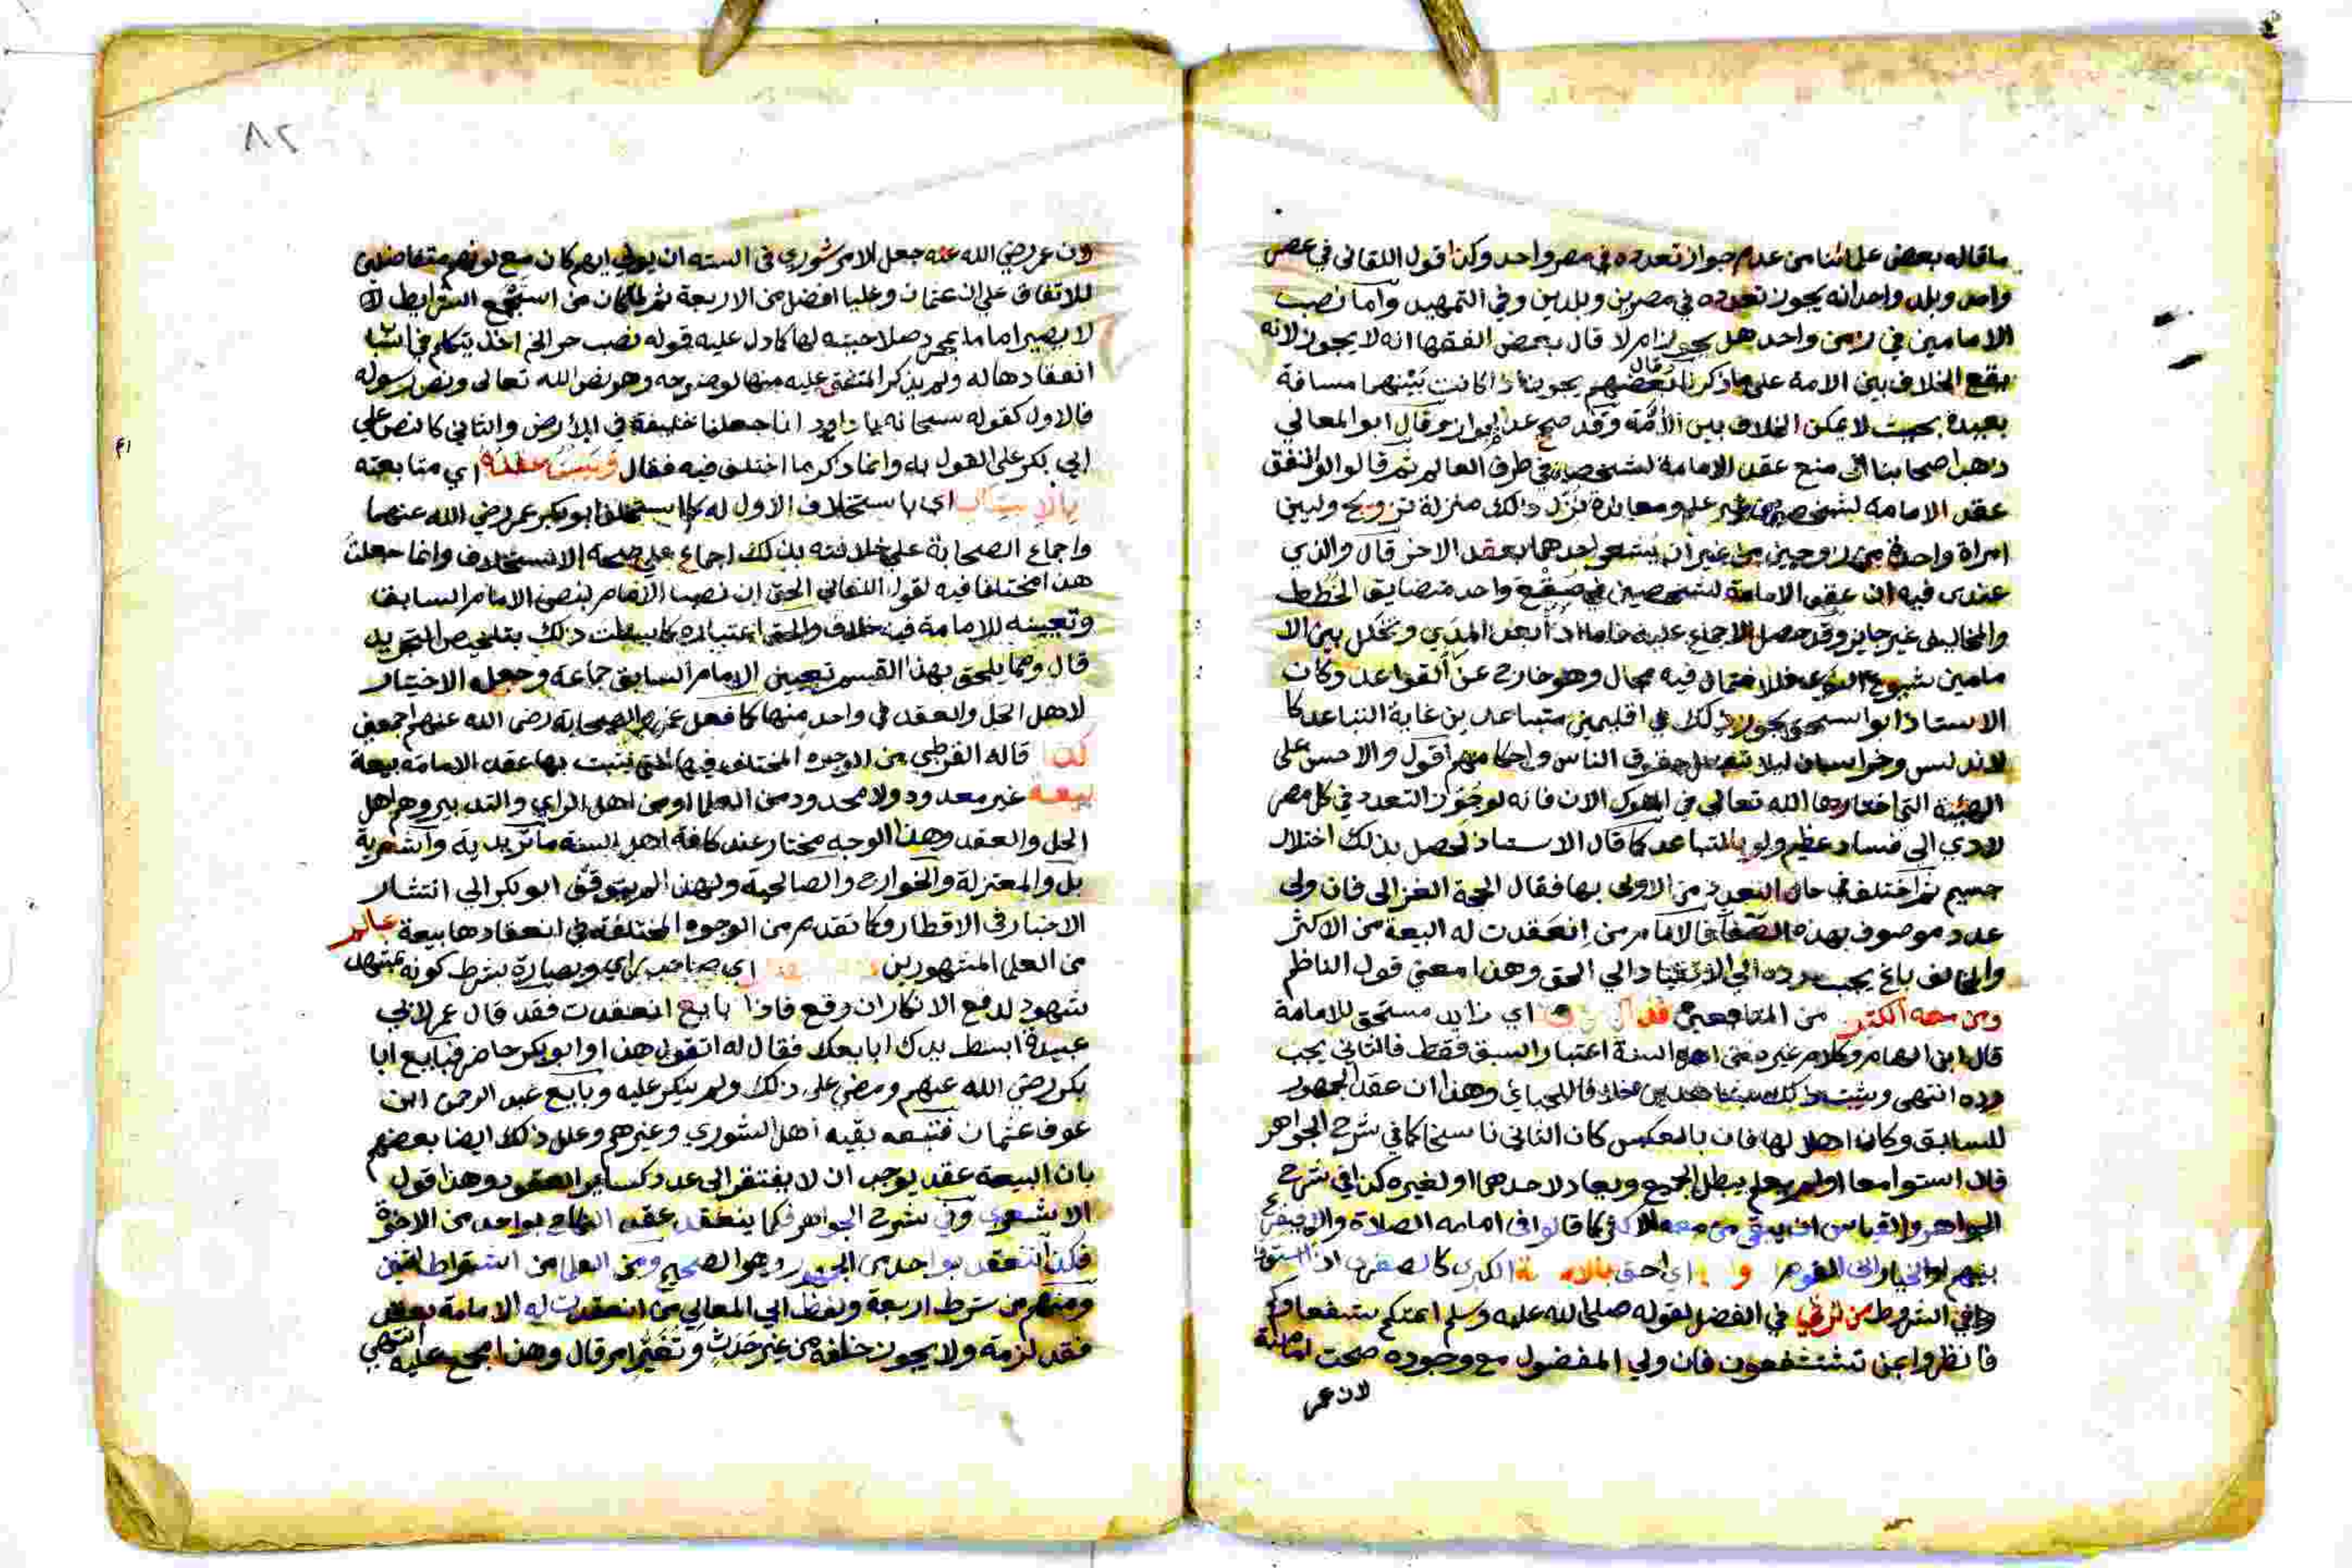 ما قاله بعض علمائنا من عدم جواز تعدده في مصر واحد وكذا قول اللقاني في عصر
واحد وبلد واحد انه يجوز تعدده في مصرين وبلدين وفي التمهيد واما نصب
الامامين في زمن واحد هل يجوز ام لا قال بعض الفقها انه لا يجوز لانه
يقع الخلاف بين الامة على ما ذكرنا وقال بعضهم يجوز اذا كانت بينهما مسافة
بعيدة بحيث لا يمكن الخلاف بين الأئمة وقد صح عند الجواز وقال ابو المعالي
ذهب اصحابنا الى منع عقد الامامة لشخصين في طرف العالم ثم قالوا لو اتفق
عقد الامامة لشخصين نزل ذلك منزلة تزويج وليين
امراة واحدة من زوجين من غير ان يشعر احدهما بعقد الاخر قال والذي
عندي فيه ان عقد الامامة لشخصين في صقع واحد متضايق الخطط
والمخاليف غير جايز وقد حصل الاجماع عليه فاما اذا بعد المدي وتخلل بين الا
مامين شسوع النوى فللاحتمال فيه مجال وهو خارج عن القواعد وكان
الاستاذ ابو اسحق يجوز ذلك في اقليمين متباعدين غاية التباعد كا
لاندلس وخراسان ليلا تتعطل حقوق الناس واحكامهم اقول والاحسن على
الهيئة التي اختارها الله تعالى من الملوك الان فانه لو جوز التعدد في كل مصر
لادي الي فساد عظيم ولو بالمتباعد كما قال الاستاذ لحصل بذلك اختلال
جسيم ثم اختلف في حال التعدد من الاولى بها فقال الحجة الغزالى فان ولى
عدد موصوف بهذه الصفات فالامام من انعقدت له البيعة من الاكثر
والمخالف باغ يجب رده الي الانقياد الي الحق وهذا معنى قول الناظم
ومن معه الكثير من المتابعين اي زايد مستحق للامامة
قال ابن الهمام وكلام غيره من اهل السنة اعتبار السبق فقط فالثاني يجب
رده انتهى وهذا ان عقد الجمهور
للسابق وكان اهلا لها فان بالعكس كان الثاني ناسخا كما في شرح الجواهر
فان استوا معا او لم يعلم يبطل الجميع ويعاد لاحدهما او لغيره كذا في شرح
الجواهر والقياس كما قالوا في امامة الصلاة
بينهم او الخيار الى القوم اي احق بالامامة الكبرى كالصغرى اذا استوت
من في الفضل لقوله صلى الله عليه وسلم ائمتكم شفعاوكم
فانظروا بمن تستشفعون فان ولي المفضول مع وجوده صحت امامته
لان عمر
٨٢
ون عمر رضي الله عنه جعل الامر شوري في الستة ان يولي ايهم كان مع كونهم متفاضلين
للاتفاق على ان عثمان وعليا افضل من الاربعة ثم لما كان من استجمع الشرايط لها
لا يصير اماما بمجرد صلاحيته لها كما دل عليه قوله نصب حر الخ اخذ يتكلم في اسباب
انعقادها له ولم يذكر المتفق عليه منها لوضوحه وهو نص الله تعالى ونص رسوله
فالاول كقوله سبحانه يا داود انا جعلناك خليفة في الأرض والثاني كالنص على
ابي بكر على القول به وانما ذكر ما اختلف فيه فقال ويثبت عقده اي متابعته
اي باستخلاف الاول له كما استخلف ابو بكر عمر رضي الله عنهما
واجماع الصحابة على خلافته بذلك اجماع على صحة الاستخلاف وانما جعلت
هذا مختلفا فيه لقول اللقاني الحق ان نصب الامام بنص الامام السابق
وتعيينه للامامة فيه خلاف والحق اعتباره كما بسطت ذلك بتلخيص التجريد
قال ومما يلحق بهذا القسم تعيين الامام السابق جماعة وجعله الاختيار
لاهل الحل والعقد في واحد منها كما فعل عمر بالصحابة رضي الله عنهم اجمعين
كذا قاله القرطبي من الوجوه المختلف فيها التي يثبت بها عقد الامامة بيعة
بيعة غير معدود ولا محدود من العلما او من اهل الراي والتدبير وهم اهل
الحل والعقد وهذا الوجه مختار عند كافة اهل السنة ماتريدية واشعرية
بل والمعتزلة والخوارج والصالحية ولهذا لم يتوقف ابو بكر الي انتشار
الاخبار في الاقطار وكما تقديم من الوجوه المختلفة في انعقادها بيعة عالم
من العلما المشهورين اي صاحب راي وبصارة بشرط كونه بمشهد
شهود لدفع الانكار ان وقع فاذا بايع انعقدت فقد قال عمر لابي
عبيدة ابسط يدك ابايعك فقال له اتقول هذا وابو بكر حاضر فبايع ابا
بكر رضي الله عنهم ومضى على ذلك ولم ينكر عليه وبايع عبد الرحمن ابن
عوف عثمان فتبعه بقية اهل الشوري وغيرهم وعلل ذلك ايضا بعضهم
بان البيعة عقد يوجب ان لا يفتقر الى عدد كساير العقود وهذا قول
الاشعري وفي شرح الجواهر فكما ينعقد عقد النكاح بواحد من الاخوة
فكذا تنعقد بواحد وهو الصحيح ومن العلما من اشترط اثنين
ومنهم من شرط اربعة ولفظ ابي المعالي من انعقدت له الامامة بعقد
فقد لزمة ولا يجوز خلعه من غير حدث وتغير امر قال وهذا مجمع عليه انتهى